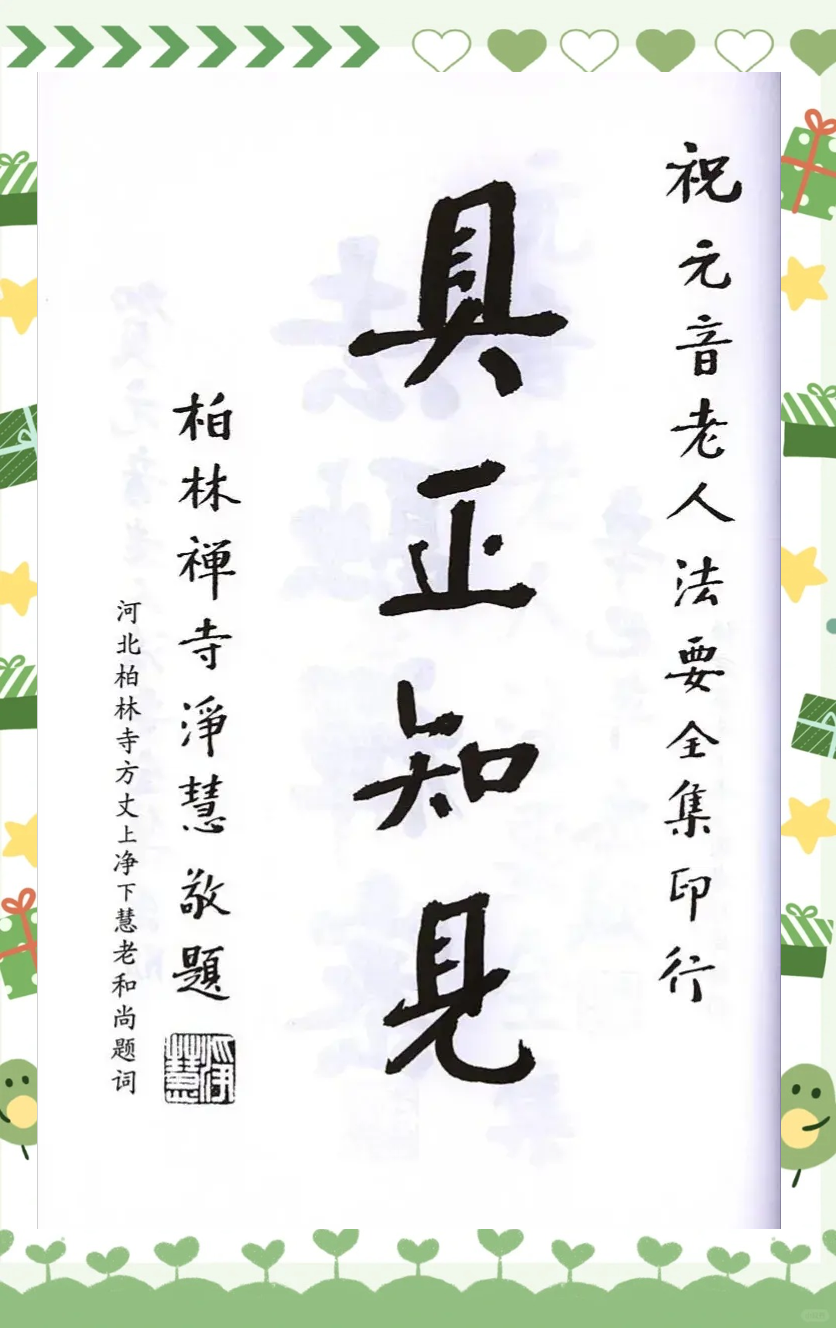 祝元音老人法要全集印行
具正知见
柏林禅寺淨慧敬題
淨慧
河北柏林寺方丈上净下慧老和尚题词